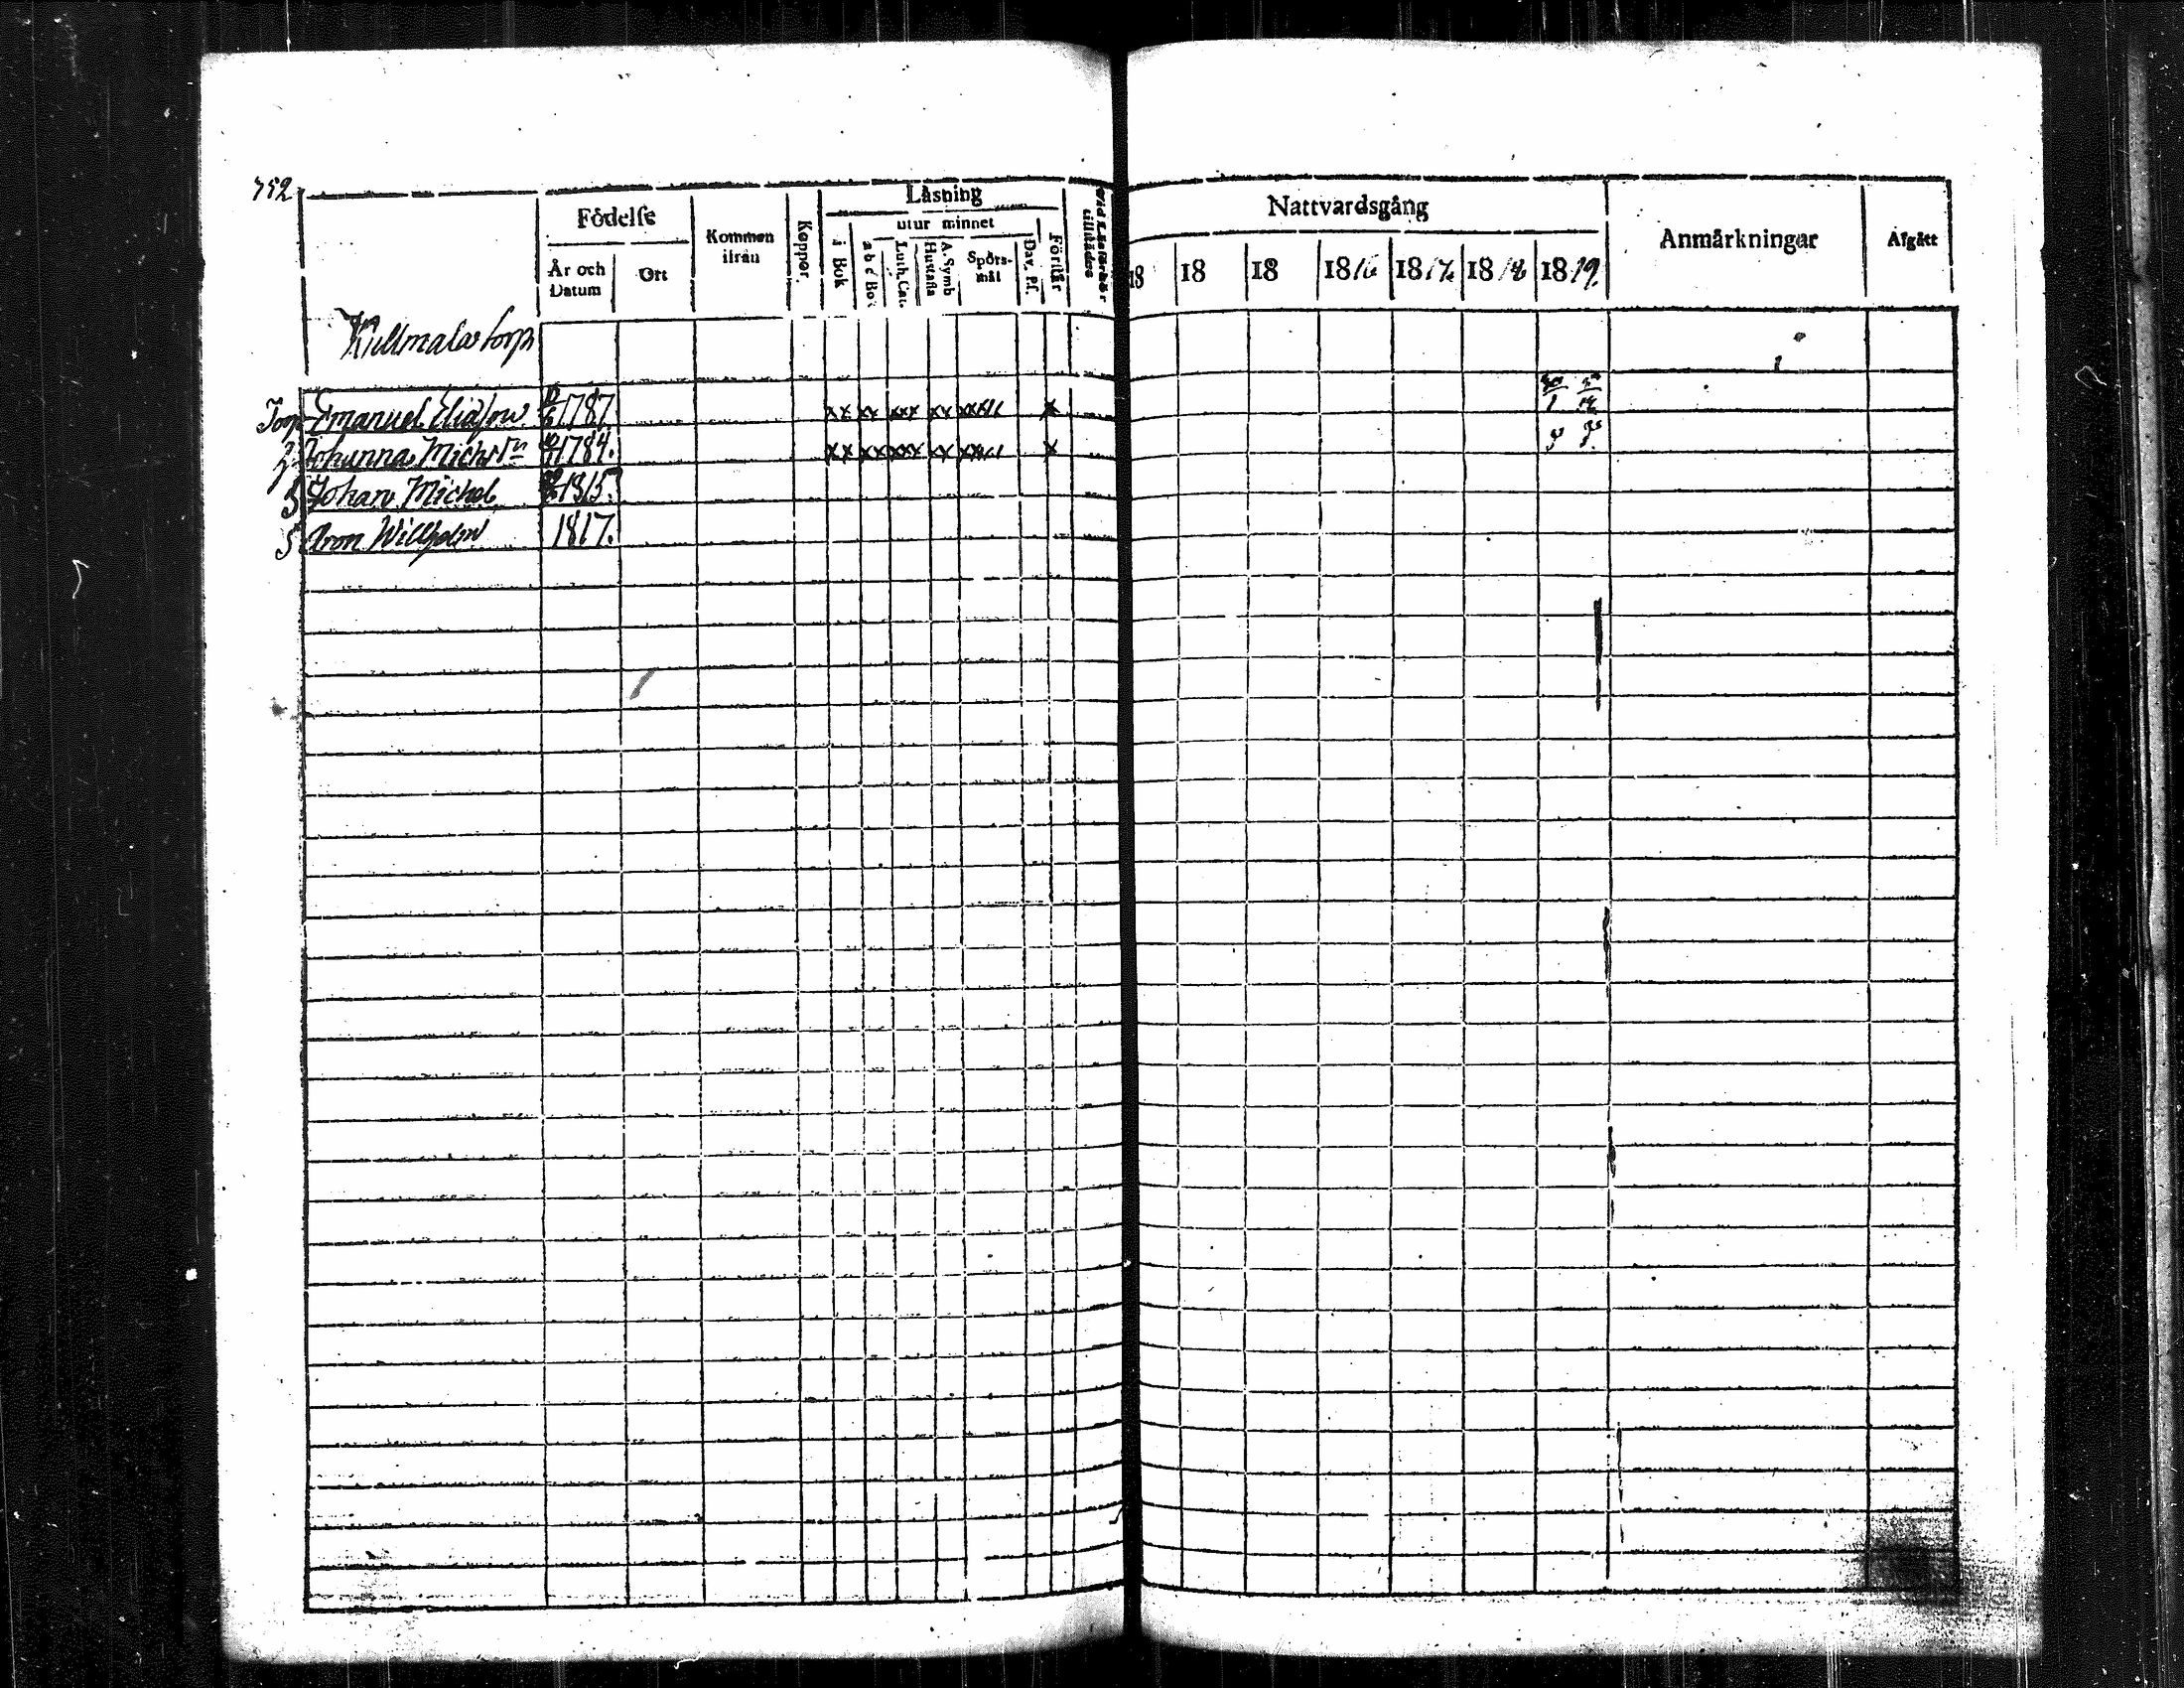 752
Födelse
År och Datum
Ort
Kommen ifrån
Koppor.
Läsning
i Bok
utur minnet
a b c Bok
Luth. Cat.
Hustafla
A. Symb
Spörs-mål
Dav. Ps.
Förstår
Nattvardsgång
18
18
18
1816
1817.
1818
1819.
Anmärkningar
Afgått
Killmalas torp
Torp Emanuel Eliasson 1787.
Johanna Michrsdr 1784.
S Johan Michel 1815.
S. Aron Wilhelm 1817.